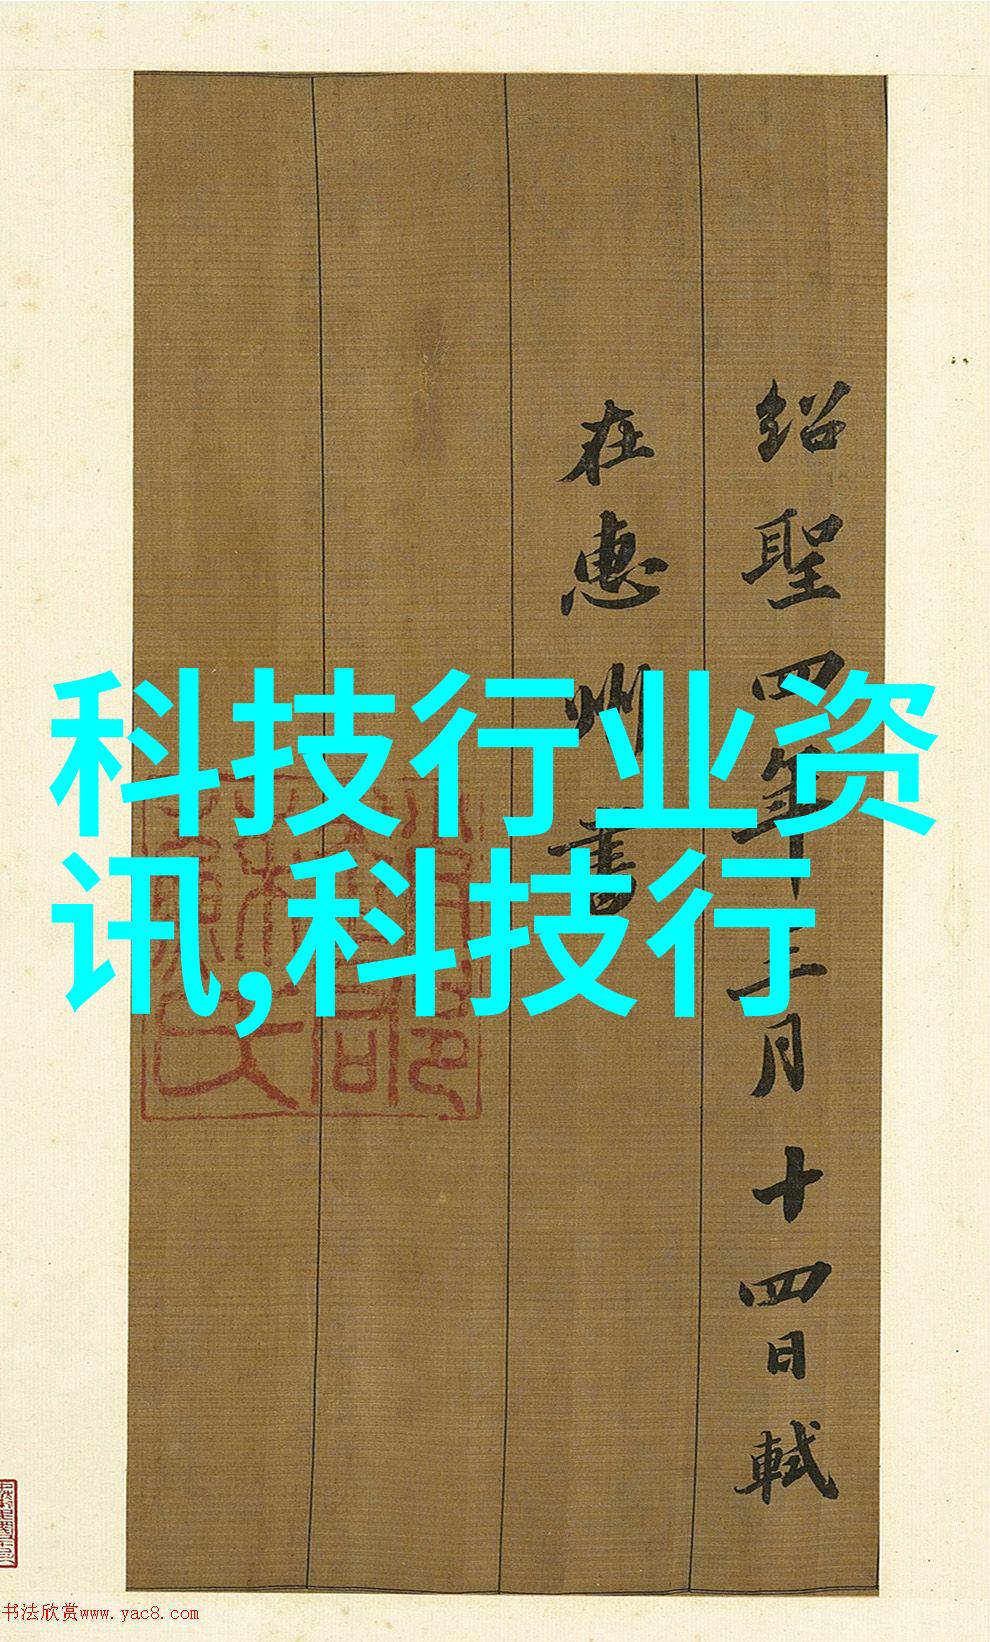 紹聖四年三月十四日軾
在惠州書
科技行业资
讯,科技行
书法欣赏www.yac8.com